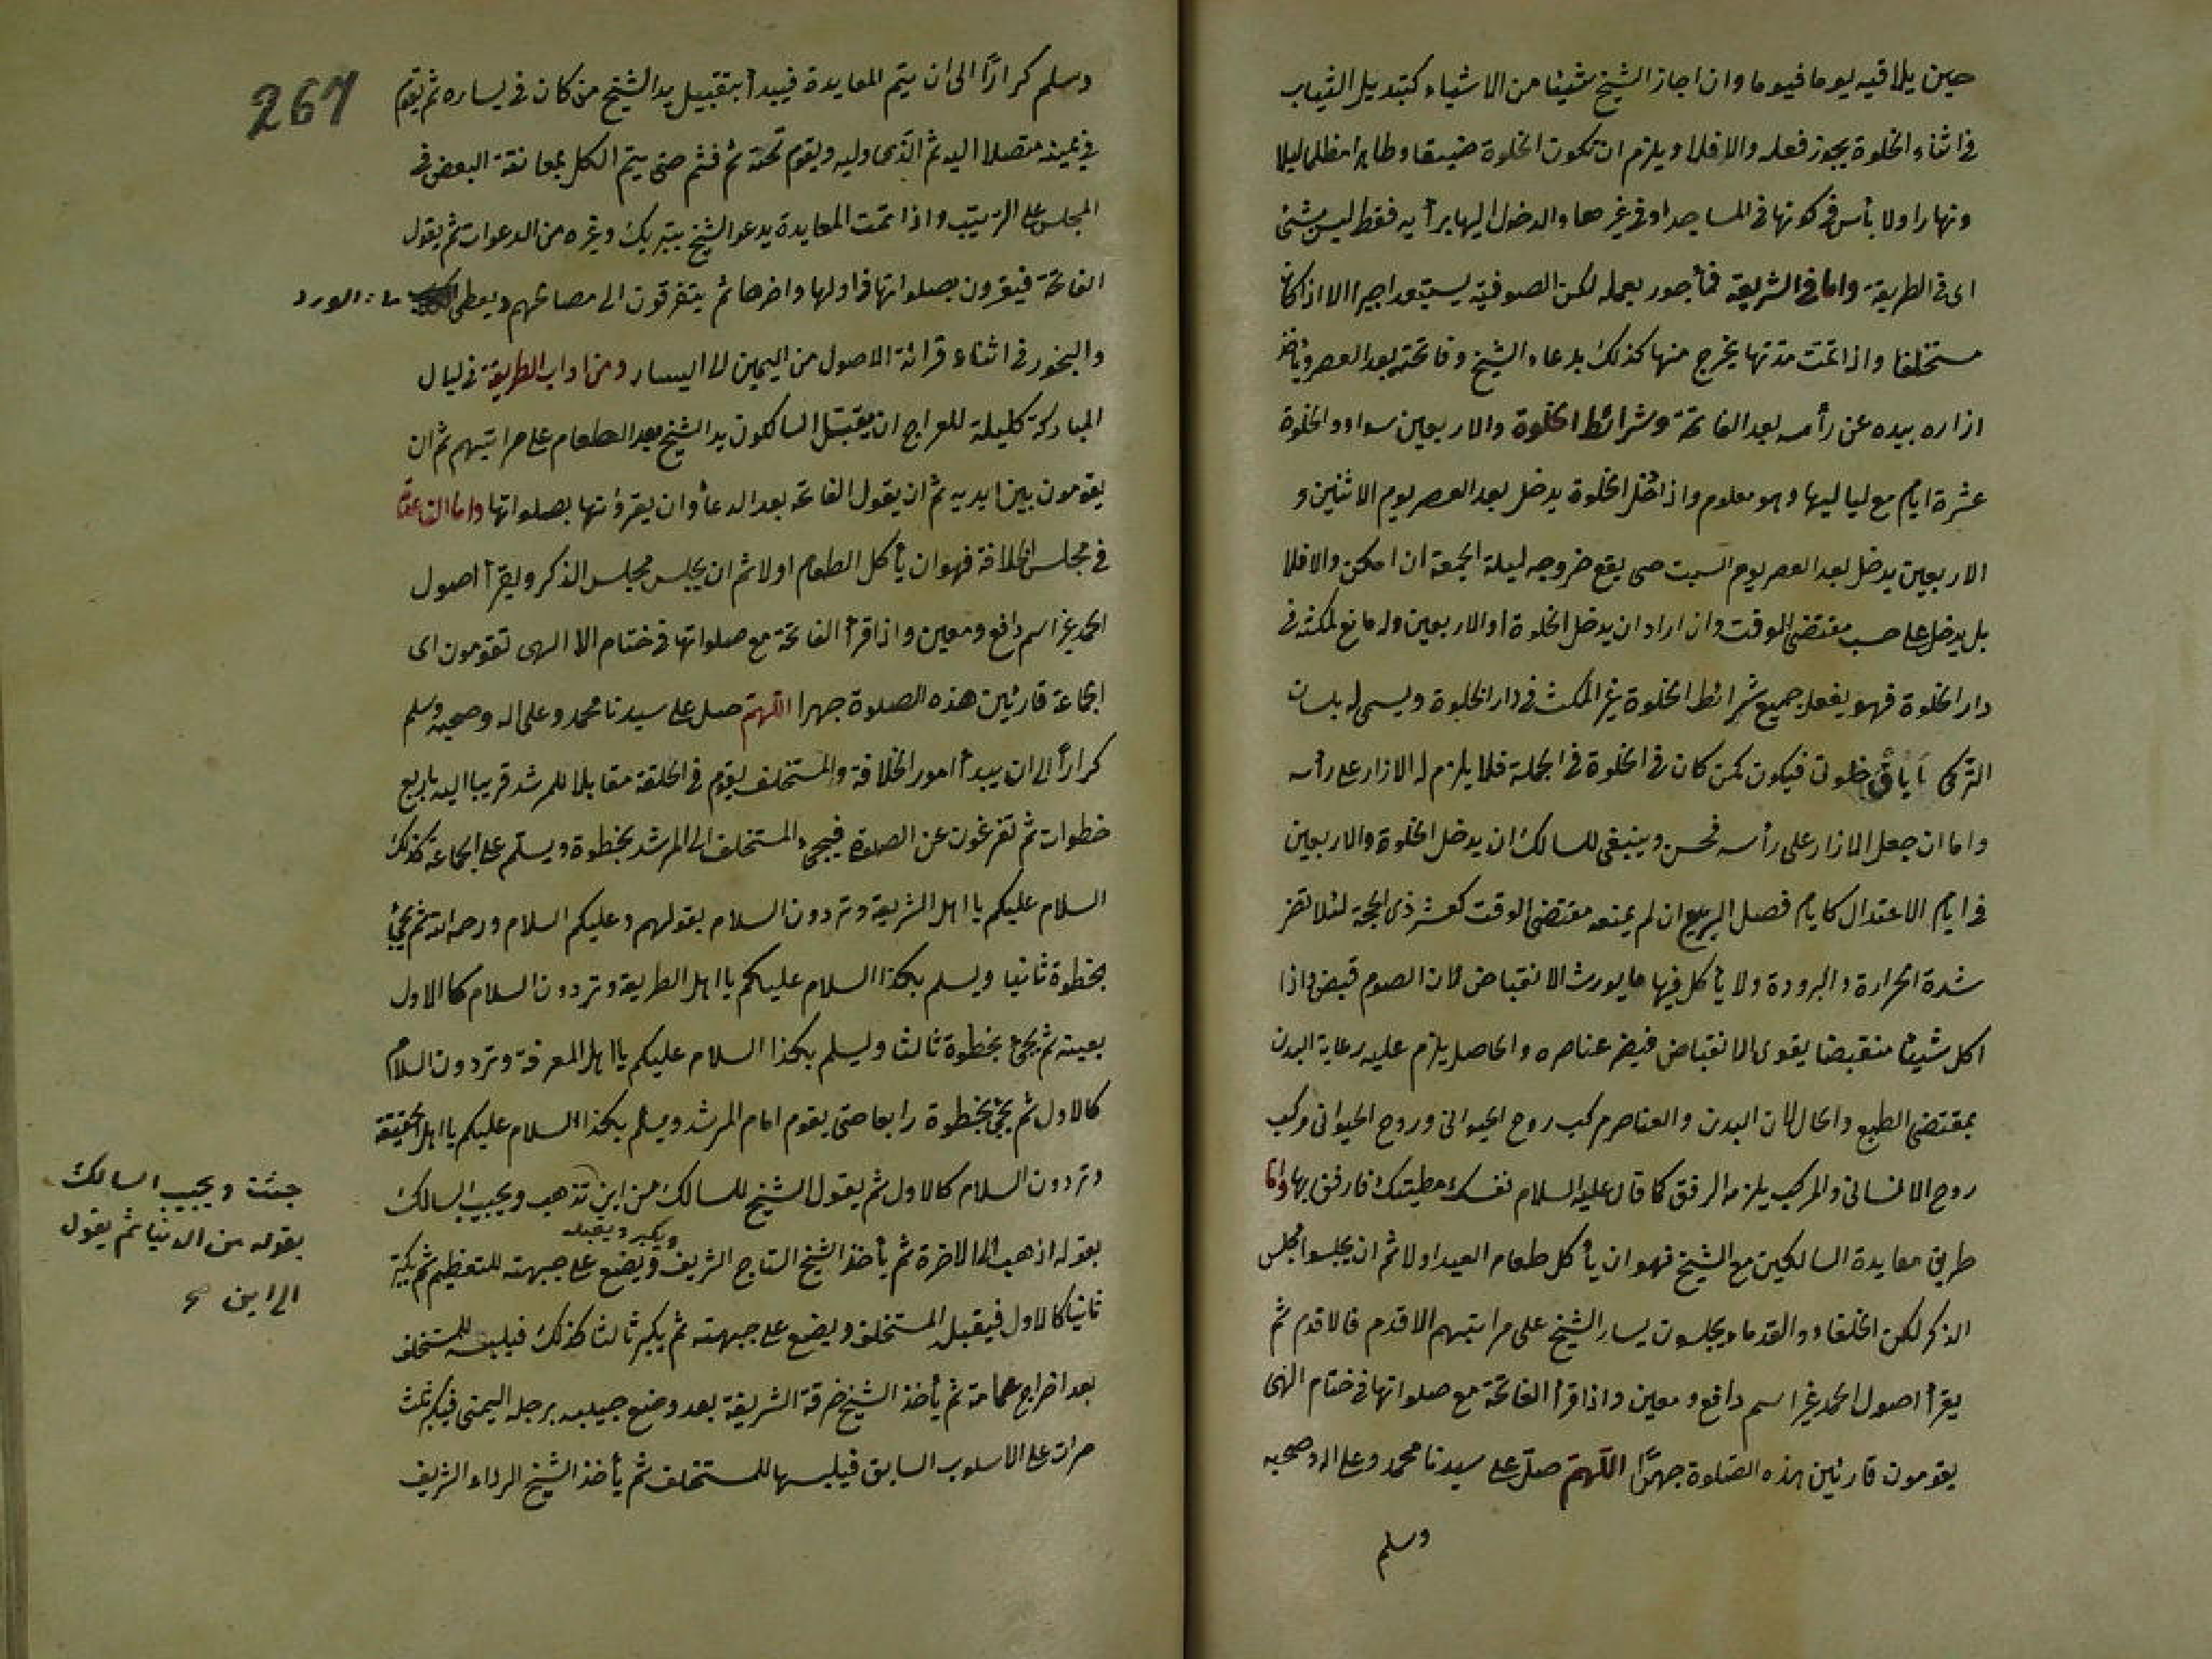 حين يلاقيه يوما فيوما وان اجاز الشيخ شيئا من الاشياء كتبديل الثياب
فى اثناء الخلوة يجوز فعله والا فلا ويلزم ان تكون الخلوة ضيقا وطاهرا مظلما ليلا
ونهارا ولا بأس فى كونها فى المساجد او فى غيرها والدخول اليها برأيه فقط ليس بشئ
اى فى الطريقة واما فى الشريعة فمأجور بعمله لكن الصوفية اجيرا الا اذا كان
مستخلفا واذا تمت مدتها يخرج منها كذلك بدعاء الشيخ وفاتحته بعد العصر ويأخذ
ازاره بيده عن رأسه بعد الفاتحة وشرائط الخلوة والاربعين سواء والخلوة
عشرة ايام مع لياليها وهو معلوم واذا دخل الخلوة يدخل بعد العصر يوم الاثنين و
الاربعين يدخل بعد العصر يوم السبت حتى يقع خروجه ليلة الجمعة ان امكن والا فلا
بل يدخل على حسب مقتضى الوقت وان اراد ان يدخل الخلوة او الاربعين وله مانع لمكثه فى
دار الخلوة فهو يفعل جميع شرائط الخلوة غير المكث فى دار الخلوة ويسمى له بلسان
التركى اياق خلوتى فيكون كمن كان فى الخلوة فى الجملة فلا يلزم له الازار على رأسه
واما ان جعل الازار على رأسه فحسن وينبغى للسالك ان يدخل الخلوة والاربعين
فى ايام الاعتدال كايام فصل الربيع ان لم يمنعه مقتضى الوقت كعشر ذى الحجة لئلا تضر
شدة الحرارة والبرودة ولا يأكل فيها ما يورث الانقباض لان الصوم قبض واذا
اكل شيئا منقبضا يقوى الانقباض فيضر عناصره والحاصل يلزم عليه رعاية البدن
بمقتضى الطبع والحال لان البدن والعناصر مركب روح الحيوانى وروح الحيوانى مركب
روح الانسانى والمركب يلزمه الرفق كما قال عليه السلام نفسك مطيتك فارفق بها واما
طريق معايدة السالكين مع الشيخ فهو ان يأكل طعام العيد اولا ثم ان يجلسوا مجلس
الذكر لكن الخلفاء والقدماء يجلسون يسار الشيخ على مراتبهم الاقدم فالاقدم ثم
يقرأ اصول الحمد غير اسم دافع ومعين واذا قرأ الفاتحة مع صلواتها فى ختام الهى
يقومون قارئين هذه الصلوة جهرًا اللهم صل على سيدنا محمد وعلى اله وصحبه
وسلم
267
وسلم كرارًا الى ان يتم المعايدة فيبدأ بتقبيل يد الشيخ من كان فى يساره ثم يقوم
فى يمينه متصلا اليه ثم الذى وليه ويقوم تحته ثم فثم حتى يتم الكل بمعانقة البعض فى
المجلس على الترتيب واذا تمت المعايدة يدعو الشيخ بتبريك وغيره من الدعوات ثم يقول
الفاتحة فيقرؤن بصلواتها فى اولها واخرها ثم يتفرقون الى مصالحهم ويعطى ماء الورد
والبخور فى اثناء قرائة الاصول من اليمين الى اليسار ومن اداب الطريقة فى ليال
المباركة كليلة المعراج ان يقبّل السالكون يد الشيخ بعد الطعام على مراتبهم ثم ان
يقومون بين ايديه ثم ان يقول الفاتحة بعد الدعأ وان يقرؤنها بصلواتها واما القاعدة
فى مجلس الخلافة فهو ان يأكل الطعام اولا ثم ان يجلس مجلس الذكر وليقرأ اصول
الحمد غير اسم دافع ومعين واذا قرأ الفاتحة مع صلواتها فى ختام الا الهى تقومون اى
الجماعة قارئين هذه الصلوة جهرا اللهم صل على سيدنا محمد وعلى اله وصحبه وسلم
كرارًا الى ان يبدأ امور الخلافة والمستخلف يقوم فى الحلقة مقابلا للمرشد قريبا اليه باربع
خطوات ثم تفرغون عن الصلوة فيجئ المستخلف الى المرشد بخطوة ويسلم على الجماعة كذلك
السلام عليكم يا اهل الشريعة وتردون السلام بقولهم وعليكم السلام ورحمة الله ثم يجئ
بخطوة ثانيا ويسلم بكذا السلام عليكم يا اهل الطريقة وتردون السلام كالاول
بعينه ثم يجئ بخطوة ثالثا وليسلم بكذا السلام عليكم يا اهل المعرفة وتردون السلام
كالاول ثم يجئ بخطوة رابعا حتى يقوم امام المرشد ويسلم بكذا السلام عليكم يا اهل الحقيقة
وتردون السلام كالاول ثم يقول الشيخ للسالك من اين تذهب ويجيب السالك
جئت ويجيب السالك
بقوله من الدنيا ثم يقول
الى اين
بقوله اذهب الى الاخرة ثم يأخذ الشيخ التاج الشريف ويضع على جبهته للتعظيم ثم يكبر
ويكبر ويقبله
ثانيا كالاول فيقبل المستخلف ويضع على جبهته ثم يكبر ثالثا كذلك فيلبسه للمستخلف
بعد اخراج عمامته ثم يأخذ الشيخ خرقة الشريفة بعد وضع برجله اليمنى فيكبر ثلث
مرات على الاسلوب السابق فيلبسها للمستخلف ثم يأخذ الشيخ الرداء الشريف